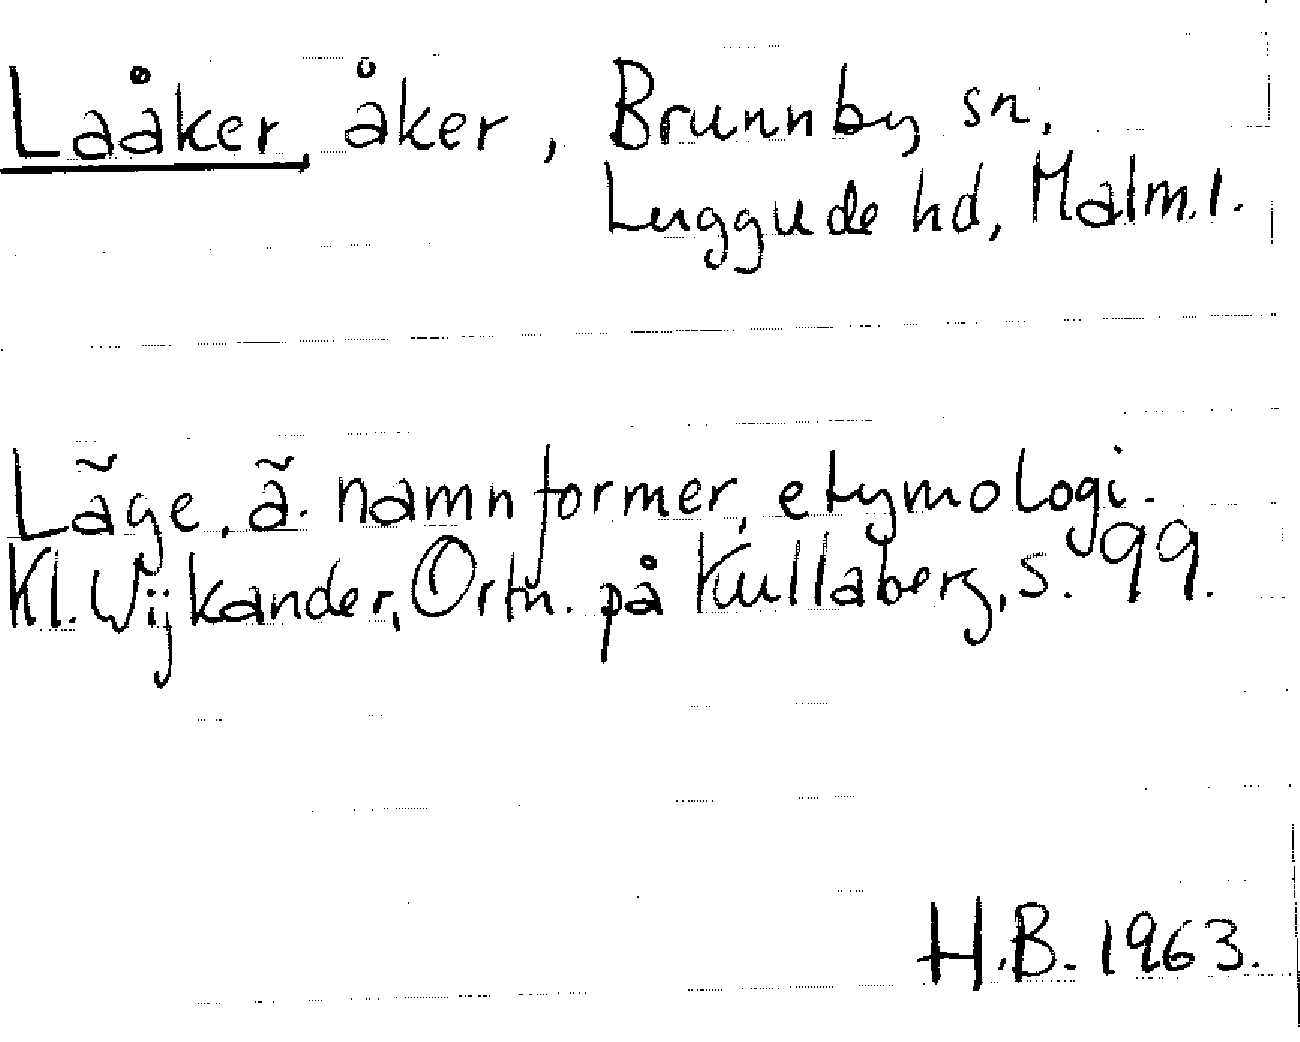 Laåker, åker, Brunnby sn,
Luggude hd, Malm.l.
Läge, ä. namnformer, etymologi.
Kl. Wijkander, Ortn. på Kullaberg, s. 99.
H.B. 1963.